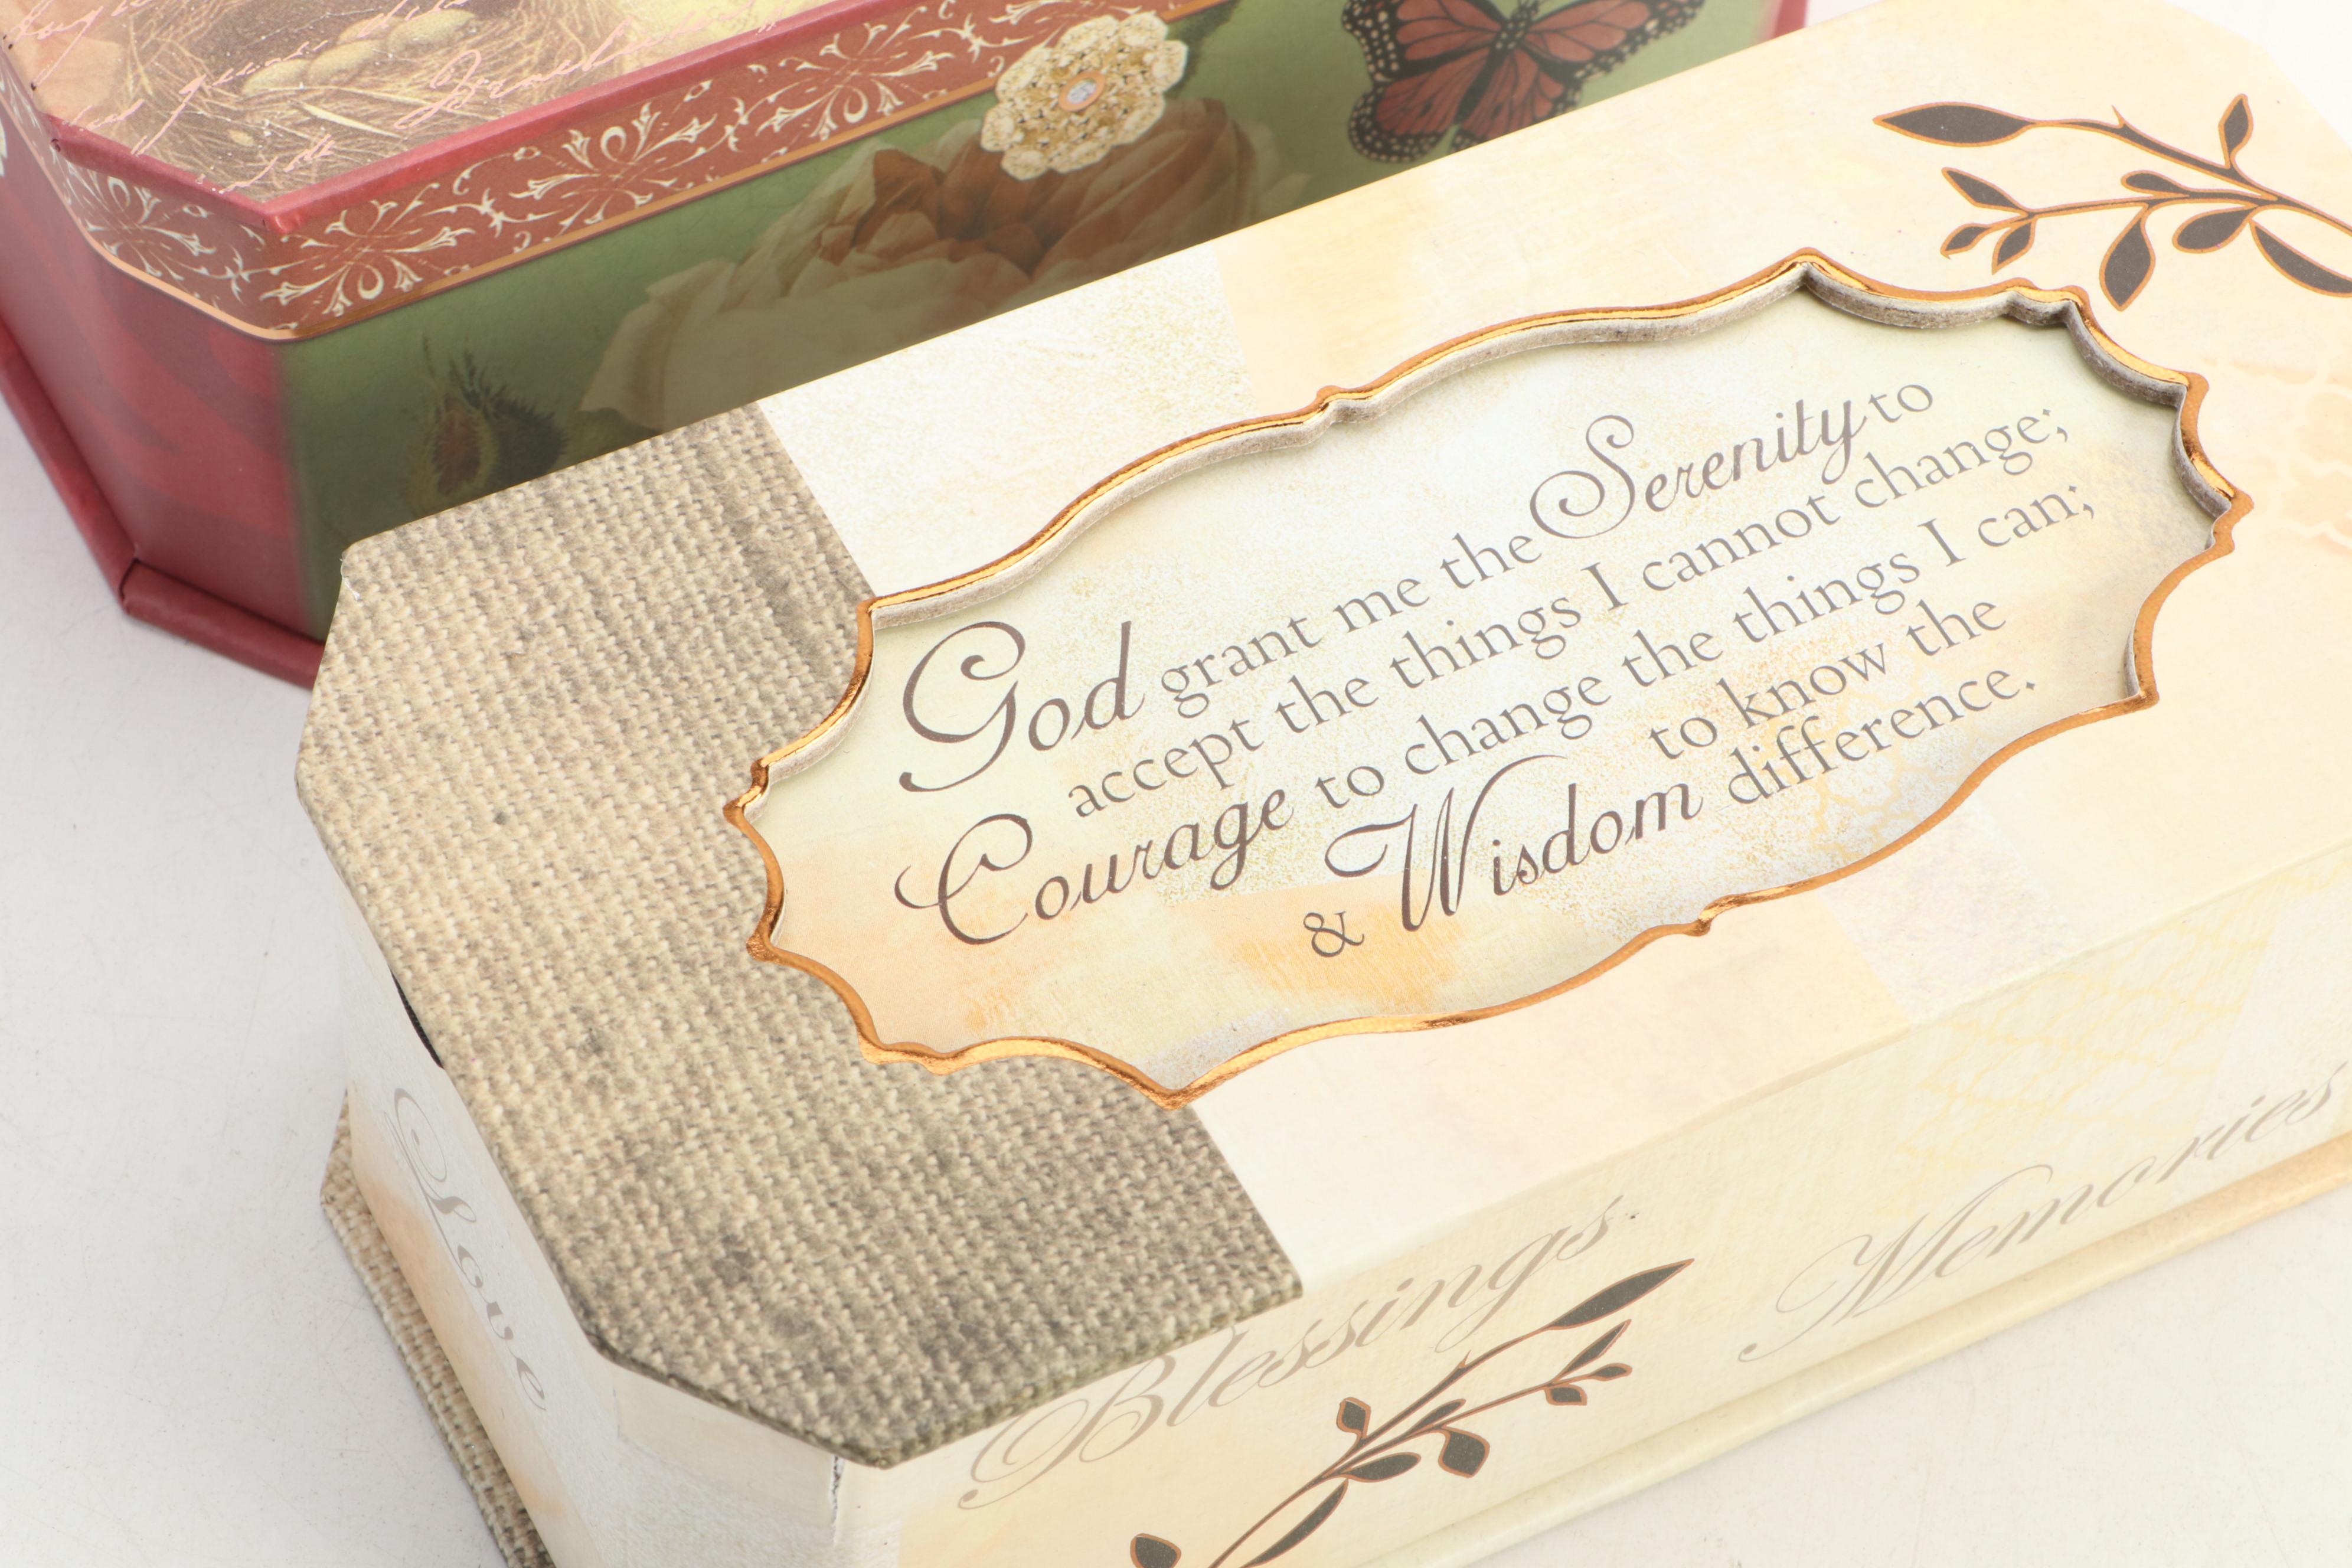 God grant me the Serenity to
accept the things I cannot change;
Courage to change the things I can;
& Wisdom to know the
difference.
Love
Blessings
Memories